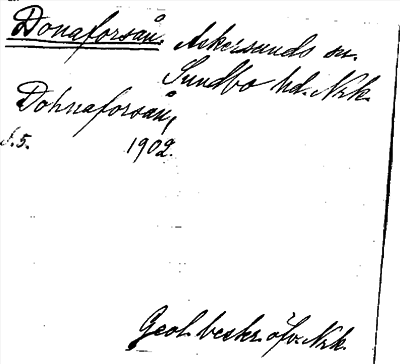 Donaforsån. Askersunds sn.
Sundbo hd. Nrk.
Dohnaforsån,
s. 5. 1902.
Geol. beskr. öfv. Nrk.